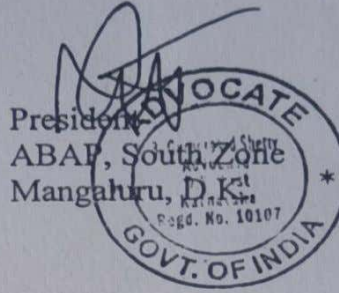 President
ABAP, South Zone
Mangaluru, D.K.
ADVOCATE
Shetty
Regd. No. 10107
GOVT. OF INDIA
*